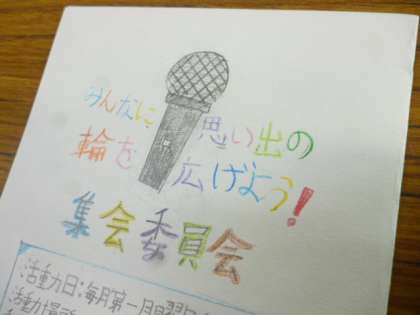 みんなに思い出の
輪を広げよう!
集会委員会
活動日:毎月第一月曜日
活動場所